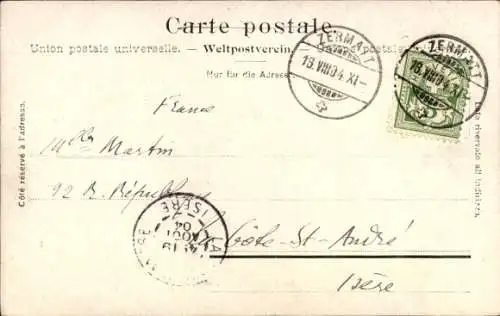 Carte postale.
Union postale universelle. – Weltpostverein. – Carte postale
Nur für die Adresse
ZERMATT
18.VIII.04.XI–
ZERMATT
18.VIII.04.XI–
France
Martin
92 R. République
La Côte-St-André
Isère
LA
ISERE
04
AOUT
Côté réservé à l'adresse.
Lato riservato all'indirizzo.